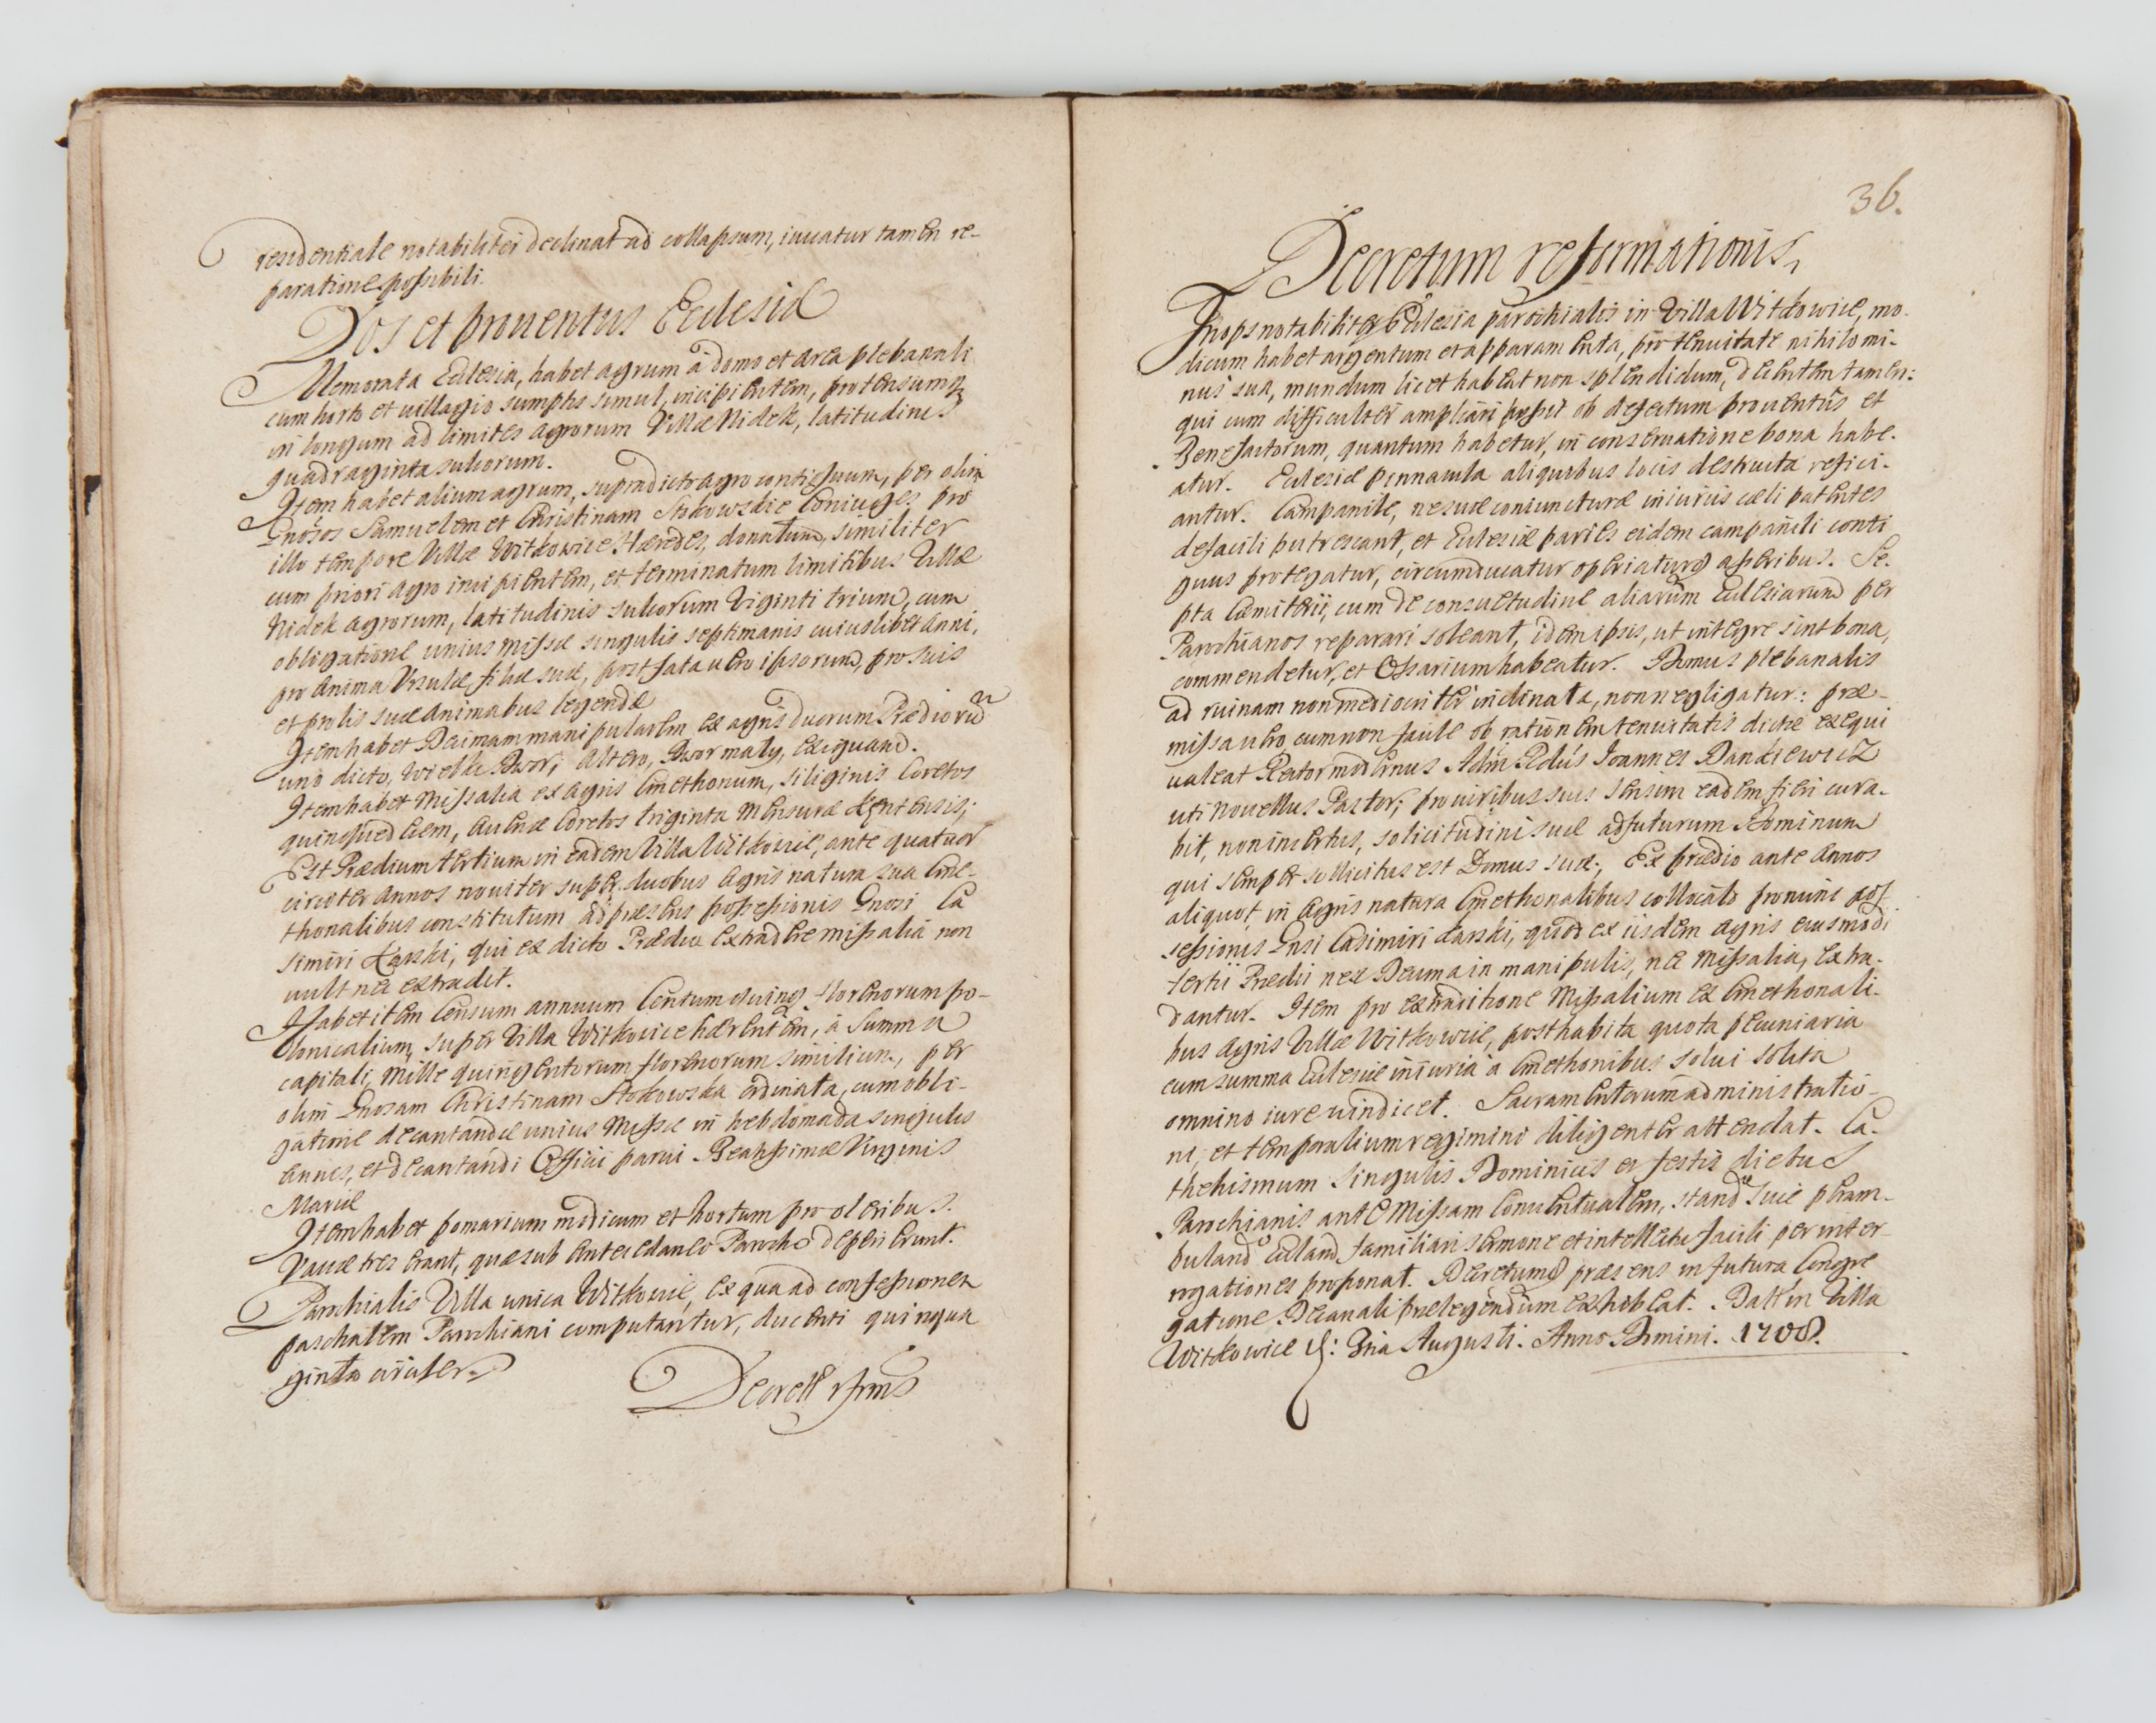 residentiale notabiliter declinat ad collapsum, iuuatur tamen re-
paratione possibili.
Dos et prouentus Ecclesiæ
Memorata Ecclesia, habet agrum à domo et area plebanali
cum horto et uillagio sumptis simul, incipientem, protensumq
in longum ad limites agrorum Villæ Nidek, latitudinis
quadraginta sulcorum.
Item habet alium agrum, supradicto agro contiguum, per olim
Gnosos Samuelem et Christinam Stokowskie Coniuges, pro
illo tempore Villæ Witkowice Hæredes, donatum, similiter
cum priori agro incipientem, et terminatum limitibus Villæ
Nidek agrorum, latitudinis sulcorum Viginti trium, cum
obligatione unius Missæ singulis septimanis cuiuslibet Anni,
pro Anima Vrsulæ filiæ suæ, post fata uero ipsorum, pro suis
et prolis suæ animabus legendæ
Item habet Decimam manipularem ex agris duorum Prædiorum
uno dicto, Wielki Dwor, Altero, Dwor maly, exiguam.
Item habet Missalia ex agris Cmethonum, siliginis Coretos
quinquedecem, Auenæ Coretos triginta Mensuræ Kentensis;
Est Prædium tertium in eadem Villa Witkowice, ante quatuor
circiter Annos nouiter super duobus Agris natura sua Cme-
thonalibus constitutum ad præsens possessionis Gnosi Ca
simiri Karski, qui ex dicto Prædio extradere missalia non
uult nec extradit.
Habet item Censum annuum Centum quinq florenorum po-
lonicalium, super Villa Witkowice hærentem, à Summa
capitali, Mille quingentorum florenorum similium, per
olim Gnosam Christinam Stokowska ordinata, cum obli-
gatione decantandæ unius Missæ in hebdomada singulis
Annis, et decantandi Officii parui Beatissimæ Virginis
Mariæ
Item habet pomarium modicum et hortum pro oleribus.
Vaccæ tres erant, quæ sub Antecedaneo Parocho deperierunt.
Parochialis Villa unica Witkowice, ex qua ad confessionem
paschalem Parochiani computantur, ducenti quinqua
ginta circiter
Decrett rfrms
36.
Decretum reformationis,
Inops notabiliter Ecclesia parochialis in Villa Witkowice, mo-
dicum habet argentum et apparamenta, pro tenuitate nihilomi-
nus sua, mundum licet habeat non splendidum, decentem tamen:
qui cum difficulter ampliari possit ob defectum prouentus et
Benefactorum, quantum habetur, in conseruatione bona habe-
atur. Ecclesiæ pinnacula aliquibus locis destructa refici-
antur. Campanile, ne suæ coniuncturæ iniuriis cæli patentes
de facili putrescant, et Ecclesiæ paries eidem campanili conti
guus protegatur, circumducatur operiaturq asseribus. Se-
pta Cæmiterii, cum de consuetudine aliarum Ecclesiarum per
Parochianos reparari soleant, idem ipsis, ut integre sint bona,
commendetur, et Ossarium habeatur. Domus plebanalis
ad ruinam non mediocriter inclinata, non negligatur: præ-
missa uero, cum non facile ob rationem tenuitatis dictæ exequi
ualeat Rector modernus Adm Rdus Ioannes Dankiewicz
uti nouellus Pastor; pro uiribus suis sensim eadem fieri cura-
bit, non incertus, solicitudini suæ adfuturum Dominum
qui semper sollicitus est Domus suæ; Ex prædio ante Annos
aliquot, in Agris natura Cmethonalibus collocato pro nunc pos
sessionis Gnsi Casimiri Karski, quod ex iisdem agris eiusmodi
tertii Prædii nec Decima in manipulis, nec Missalia, extra-
dantur. Item pro extraditione Missalium ex Cmethonali-
bus Agris Villæ Witkowice, posthabita quota pecuniaria
cum summa Ecclesiæ iniuria à Cmethonibus solui solita
omnino iure uindicet. Sacramentorum administratio-
ni, et temporalium regimini diligenter attendat. Ca-
thehismum singulis Dominicis et festis diebus
Parochianis ante Missam Conuentualem, stando siue peram-
bulando Ecclam familiari sermone et intellectu facili per inter-
rogationes proponat. Decretumq præsens in futura Congre
gatione Decanali prælegendum exhibeat. Datt in Villa
Witkowice die: 9na Augusti. Anno Domini. 1708.